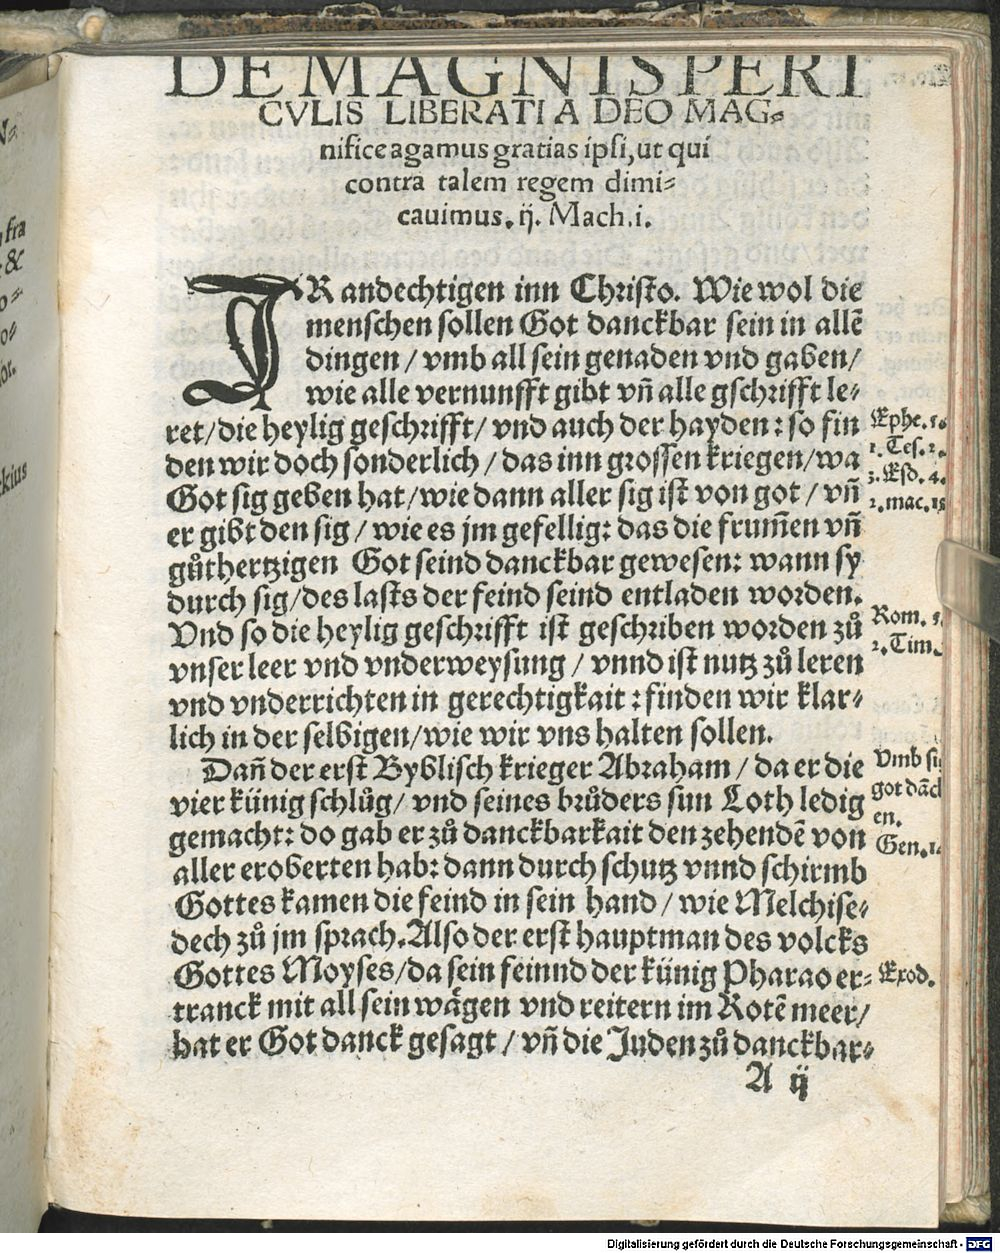 DE MAGNIS PERI
CVLIS LIBERATI A DEO MAG⸗
nifice agamus gratias ipsi, ut qui
contra talem regem dimi⸗
cauimus. ij. Mach. i.
IR andechtigen inn Christo. Wie wol die
menschen sollen Got danckbar sein in allē
dingen / vmb all sein genaden vnd gaben/
wie alle vernunfft gibt vñ alle gschrifft le⸗
ret/die heylig geschrifft/ vnd auch der hayden : so fin
den wir doch sonderlich / das inn grossen kriegen/wa
Got sig geben hat/wie dann aller sig ist von got / vñ
er gibt den sig / wie es jm gefellig: das die frum̃en vñ
gůthertzigen Got seind danckbar gewesen: wann sy
durch sig/des lasts der feind seind entladen worden.
Vnd so die heylig geschrifft ist geschriben worden zů
vnser leer vnd vnderweysung / vnnd ist nutz zů leren
vnd vnderrichten in gerechtigkait : finden wir klar⸗
lich in der selbigen/wie wir vns halten sollen.
Dañ der erst Byblisch krieger Abraham / da er die
vier künig schlůg/ vnd seines brůders sun Loth ledig
gemacht: do gab er zů danckbarkait den zehendē von
aller eroberten hab: dann durch schutz vnnd schirmb
Gottes kamen die feind in sein hand / wie Melchise⸗
dech zů jm sprach. Also der erst hauptman des volcks
Gottes Moyses/da sein feinnd der künig Pharao er⸗
tranck mit all sein wågen vnd reitern im Rotē meer/
hat er Got danck gesagt / vñ die Juden zů danckbar⸗
A ij
Ephe. 5.
1. Tes. 2.
3. Esd. 4.
2. mac. 15
Rom.
2. Tim.
Vmb si
got dāck
en.
Gen. 1
Exod.
fra
&
o⸗
o⸗
ior.
ckius
Digitalisierung gefördert durch die Deutsche Forschungsgemeinschaft - DFG